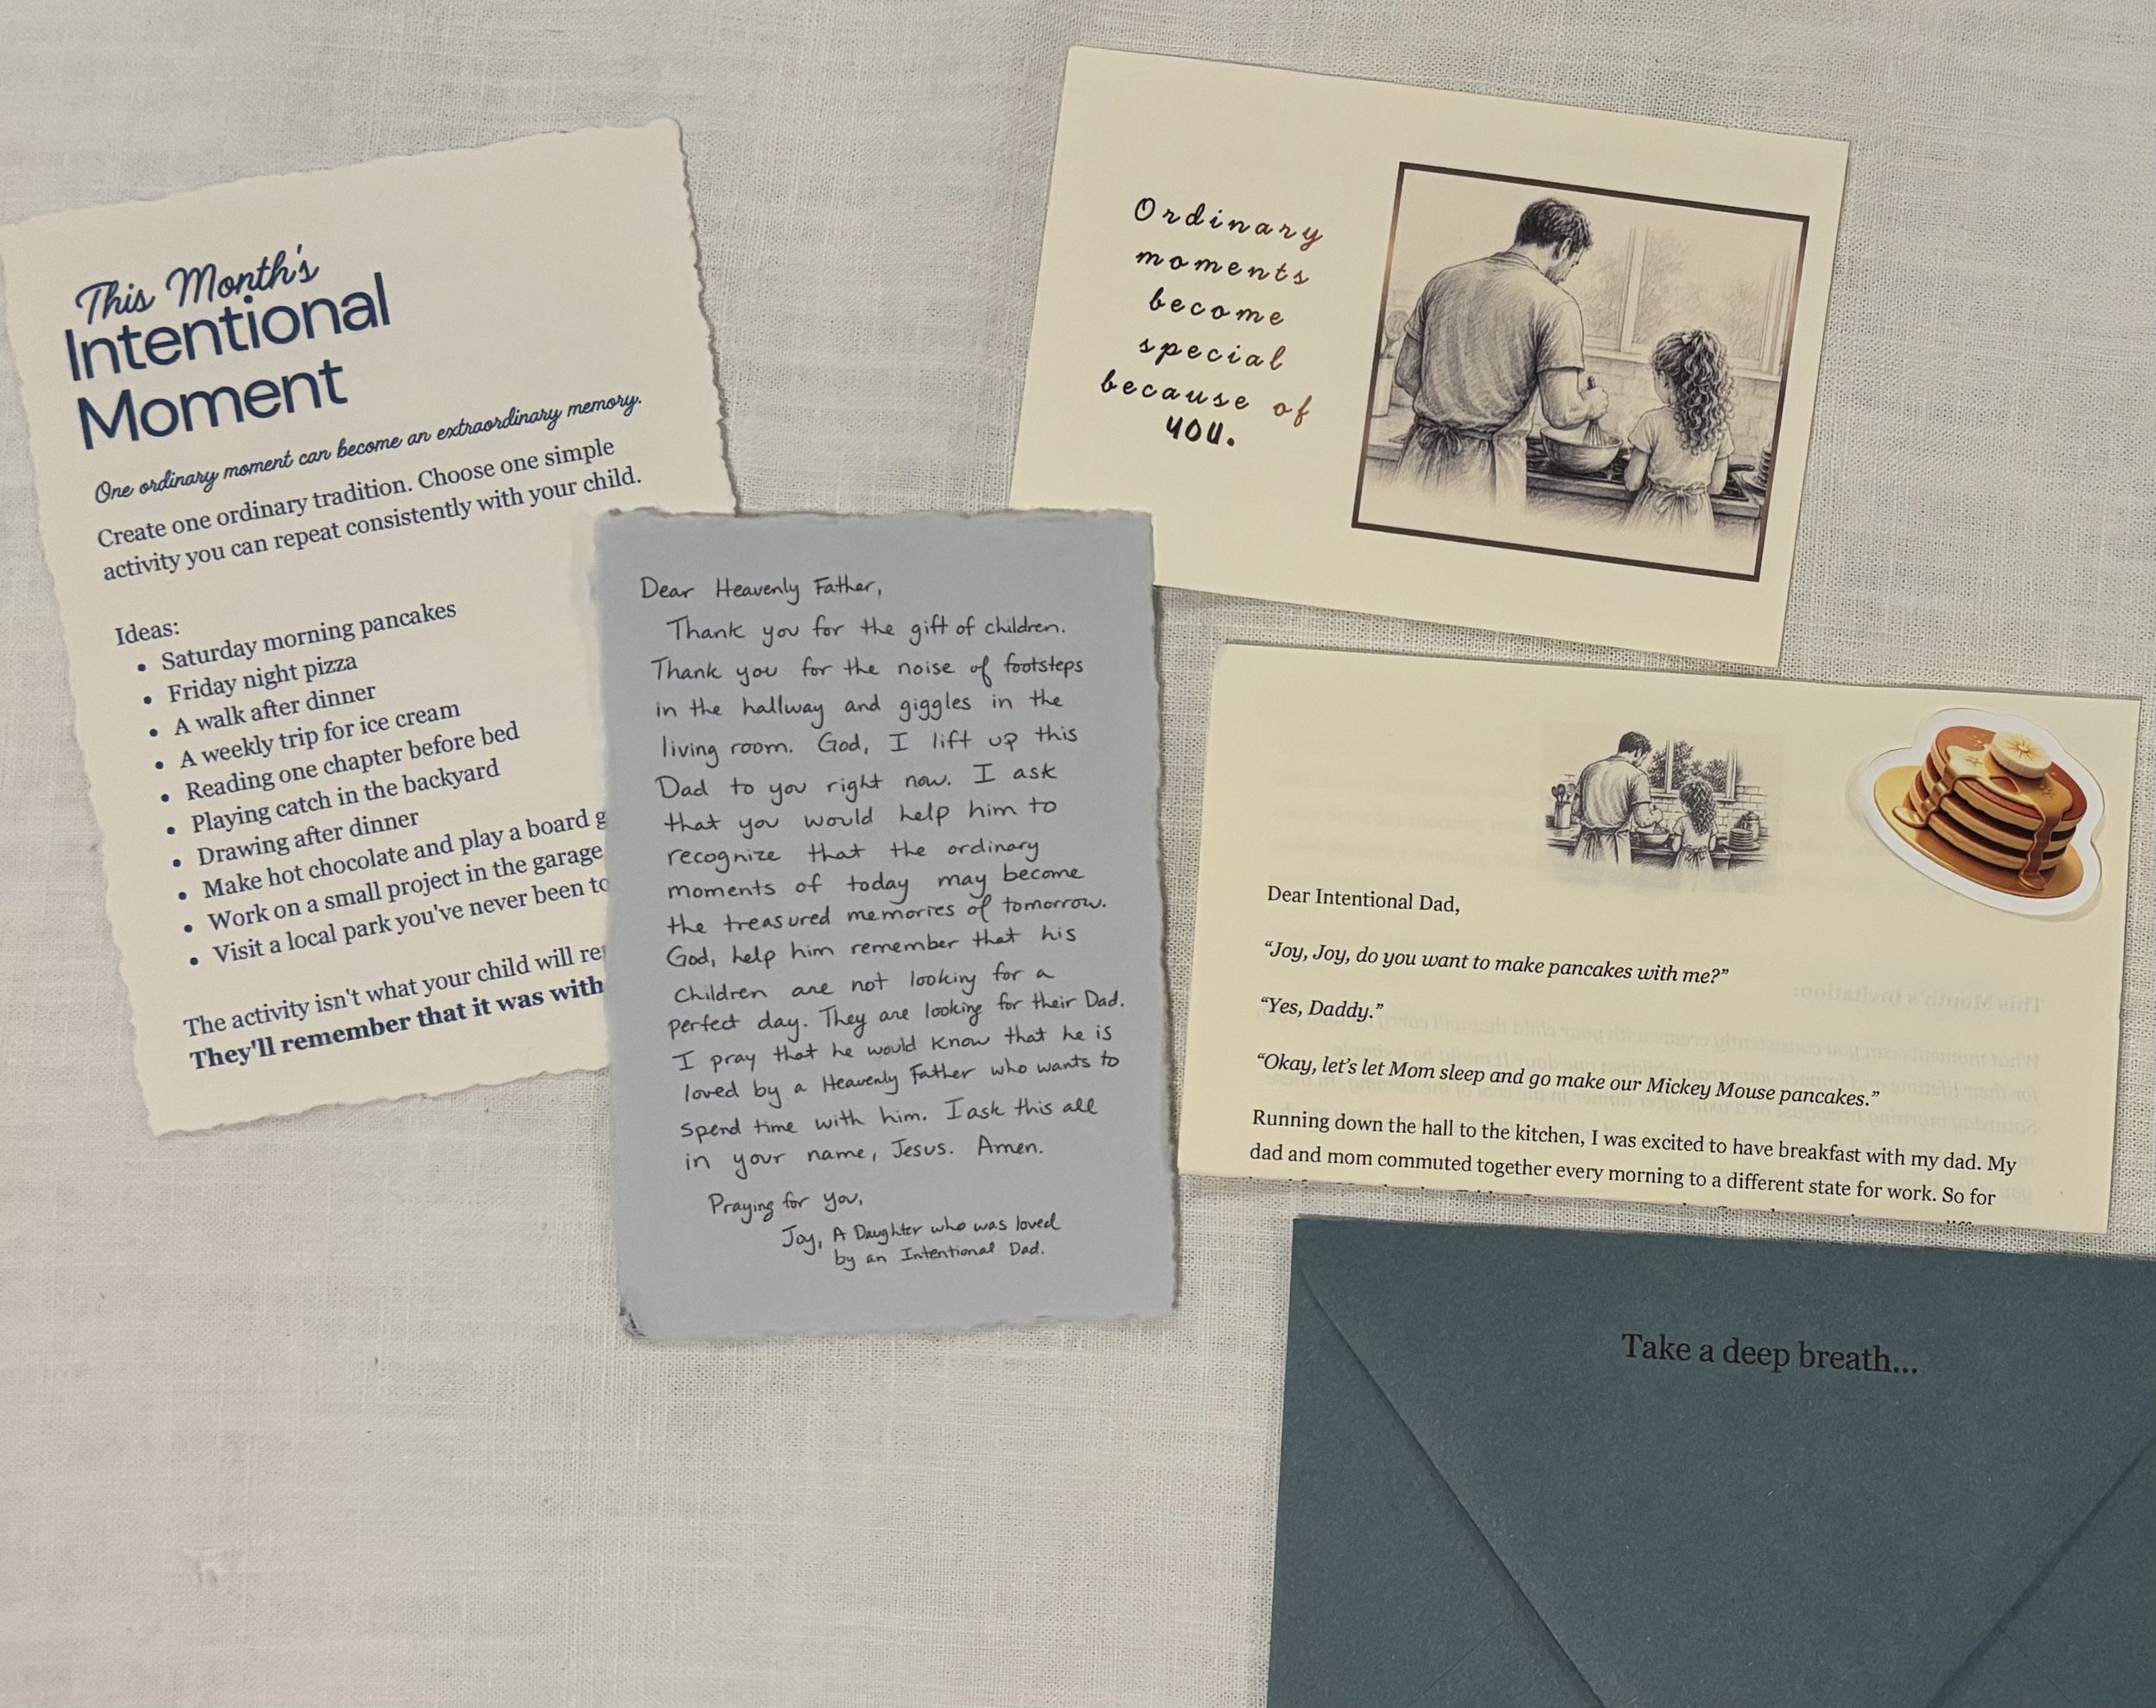 This Month's
Intentional
Moment
One ordinary moment can become an extraordinary memory.
Create one ordinary tradition. Choose one simple
activity you can repeat consistently with your child.
Ideas:
• Saturday morning pancakes
• Friday night pizza
• A walk after dinner
• A weekly trip for ice cream
• Reading one chapter before bed
• Playing catch in the backyard
• Drawing after dinner
• Make hot chocolate and play a board
• Work on a small project in the garage
• Visit a local park you've never been to
The activity isn't what your child will
They'll remember that it was with
Dear Heavenly Father,
Thank you for the gift of children.
Thank you for the noise of footsteps
in the hallway and giggles in the
living room. God, I lift up this
Dad to you right now. I ask
that you would help him to
recognize that the ordinary
moments of today may become
the treasured memories of tomorrow.
God, help him remember that his
children are not looking for a
perfect day. They are looking for their Dad.
I pray that he would know that he is
loved by a Heavenly Father who wants to
spend time with him. I ask this all
in your name, Jesus. Amen.
Praying for you,
Joy, A Daughter who was loved
by an Intentional Dad.
Ordinary
moments
become
special
because of
you.
Dear Intentional Dad,
“Joy, Joy, do you want to make pancakes with me?”
“Yes, Daddy.”
“Okay, let’s let Mom sleep and go make our Mickey Mouse pancakes.”
Running down the hall to the kitchen, I was excited to have breakfast with my dad. My
dad and mom commuted together every morning to a different state for work. So for
Take a deep breath...